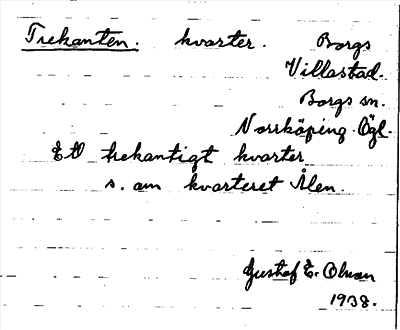 Trekanten. kvarter. Borgs
Villastad.
Borgs sn.
Norrköping. Ögl.
Ett trekantigt kvarter
s. om kvarteret Ålen.
Gustaf E.
1938.